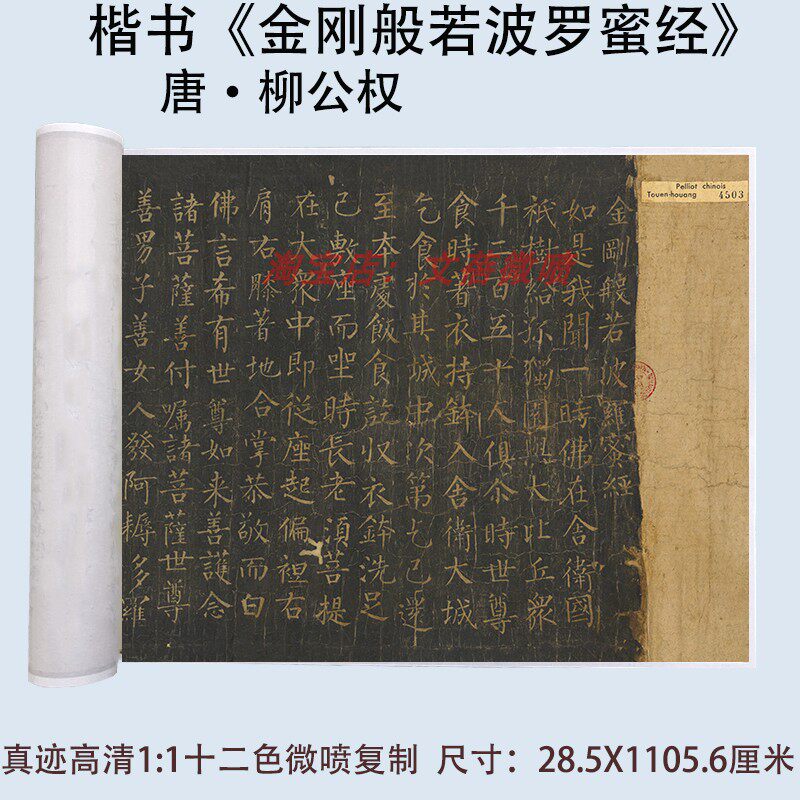 楷书《金刚般若波罗蜜经》
唐·柳公权
Pelliot chinois
Touen-houang 4503
金剛般若波羅蜜經
如是我聞一時佛在舍衛國
祇樹給孤獨園與大比丘衆
千二百五十人俱尒時世尊
食時著衣持鉢入舍衛大城
乞食扵其城中次第乞已還
至本處飯食訖收衣鉢洗足
已敷座而坐時長老湏菩提
在大衆中即從座起徧袒右
肩右膝著地合掌恭敬而白
佛言希有世尊如来善護念
諸菩薩善付嘱諸菩薩世尊
善男子善女人發阿耨多羅
真迹高清1:1十二色微喷复制 尺寸：28.5X1105.6厘米